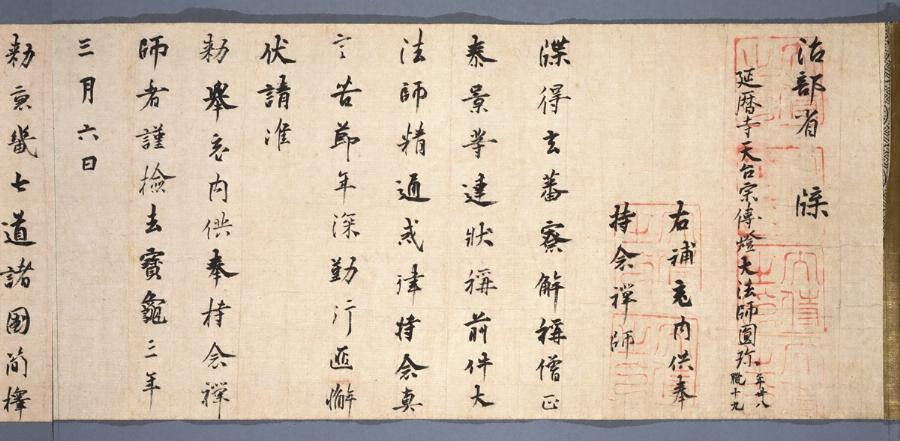 治部省　牒
延暦寺天台宗傳燈大法師圓珎 年卅八 臈十九
右補充内供奉
持念禪師
牒得玄蕃寮解稱僧正
泰景等連狀稱前件大
法師精通戒律持念真
言苦節年深勤行匪懈
伏請准
勅舉充内供奉持念禪
師者謹檢去寶龜三年
三月六日
勅京畿七道諸國簡擇